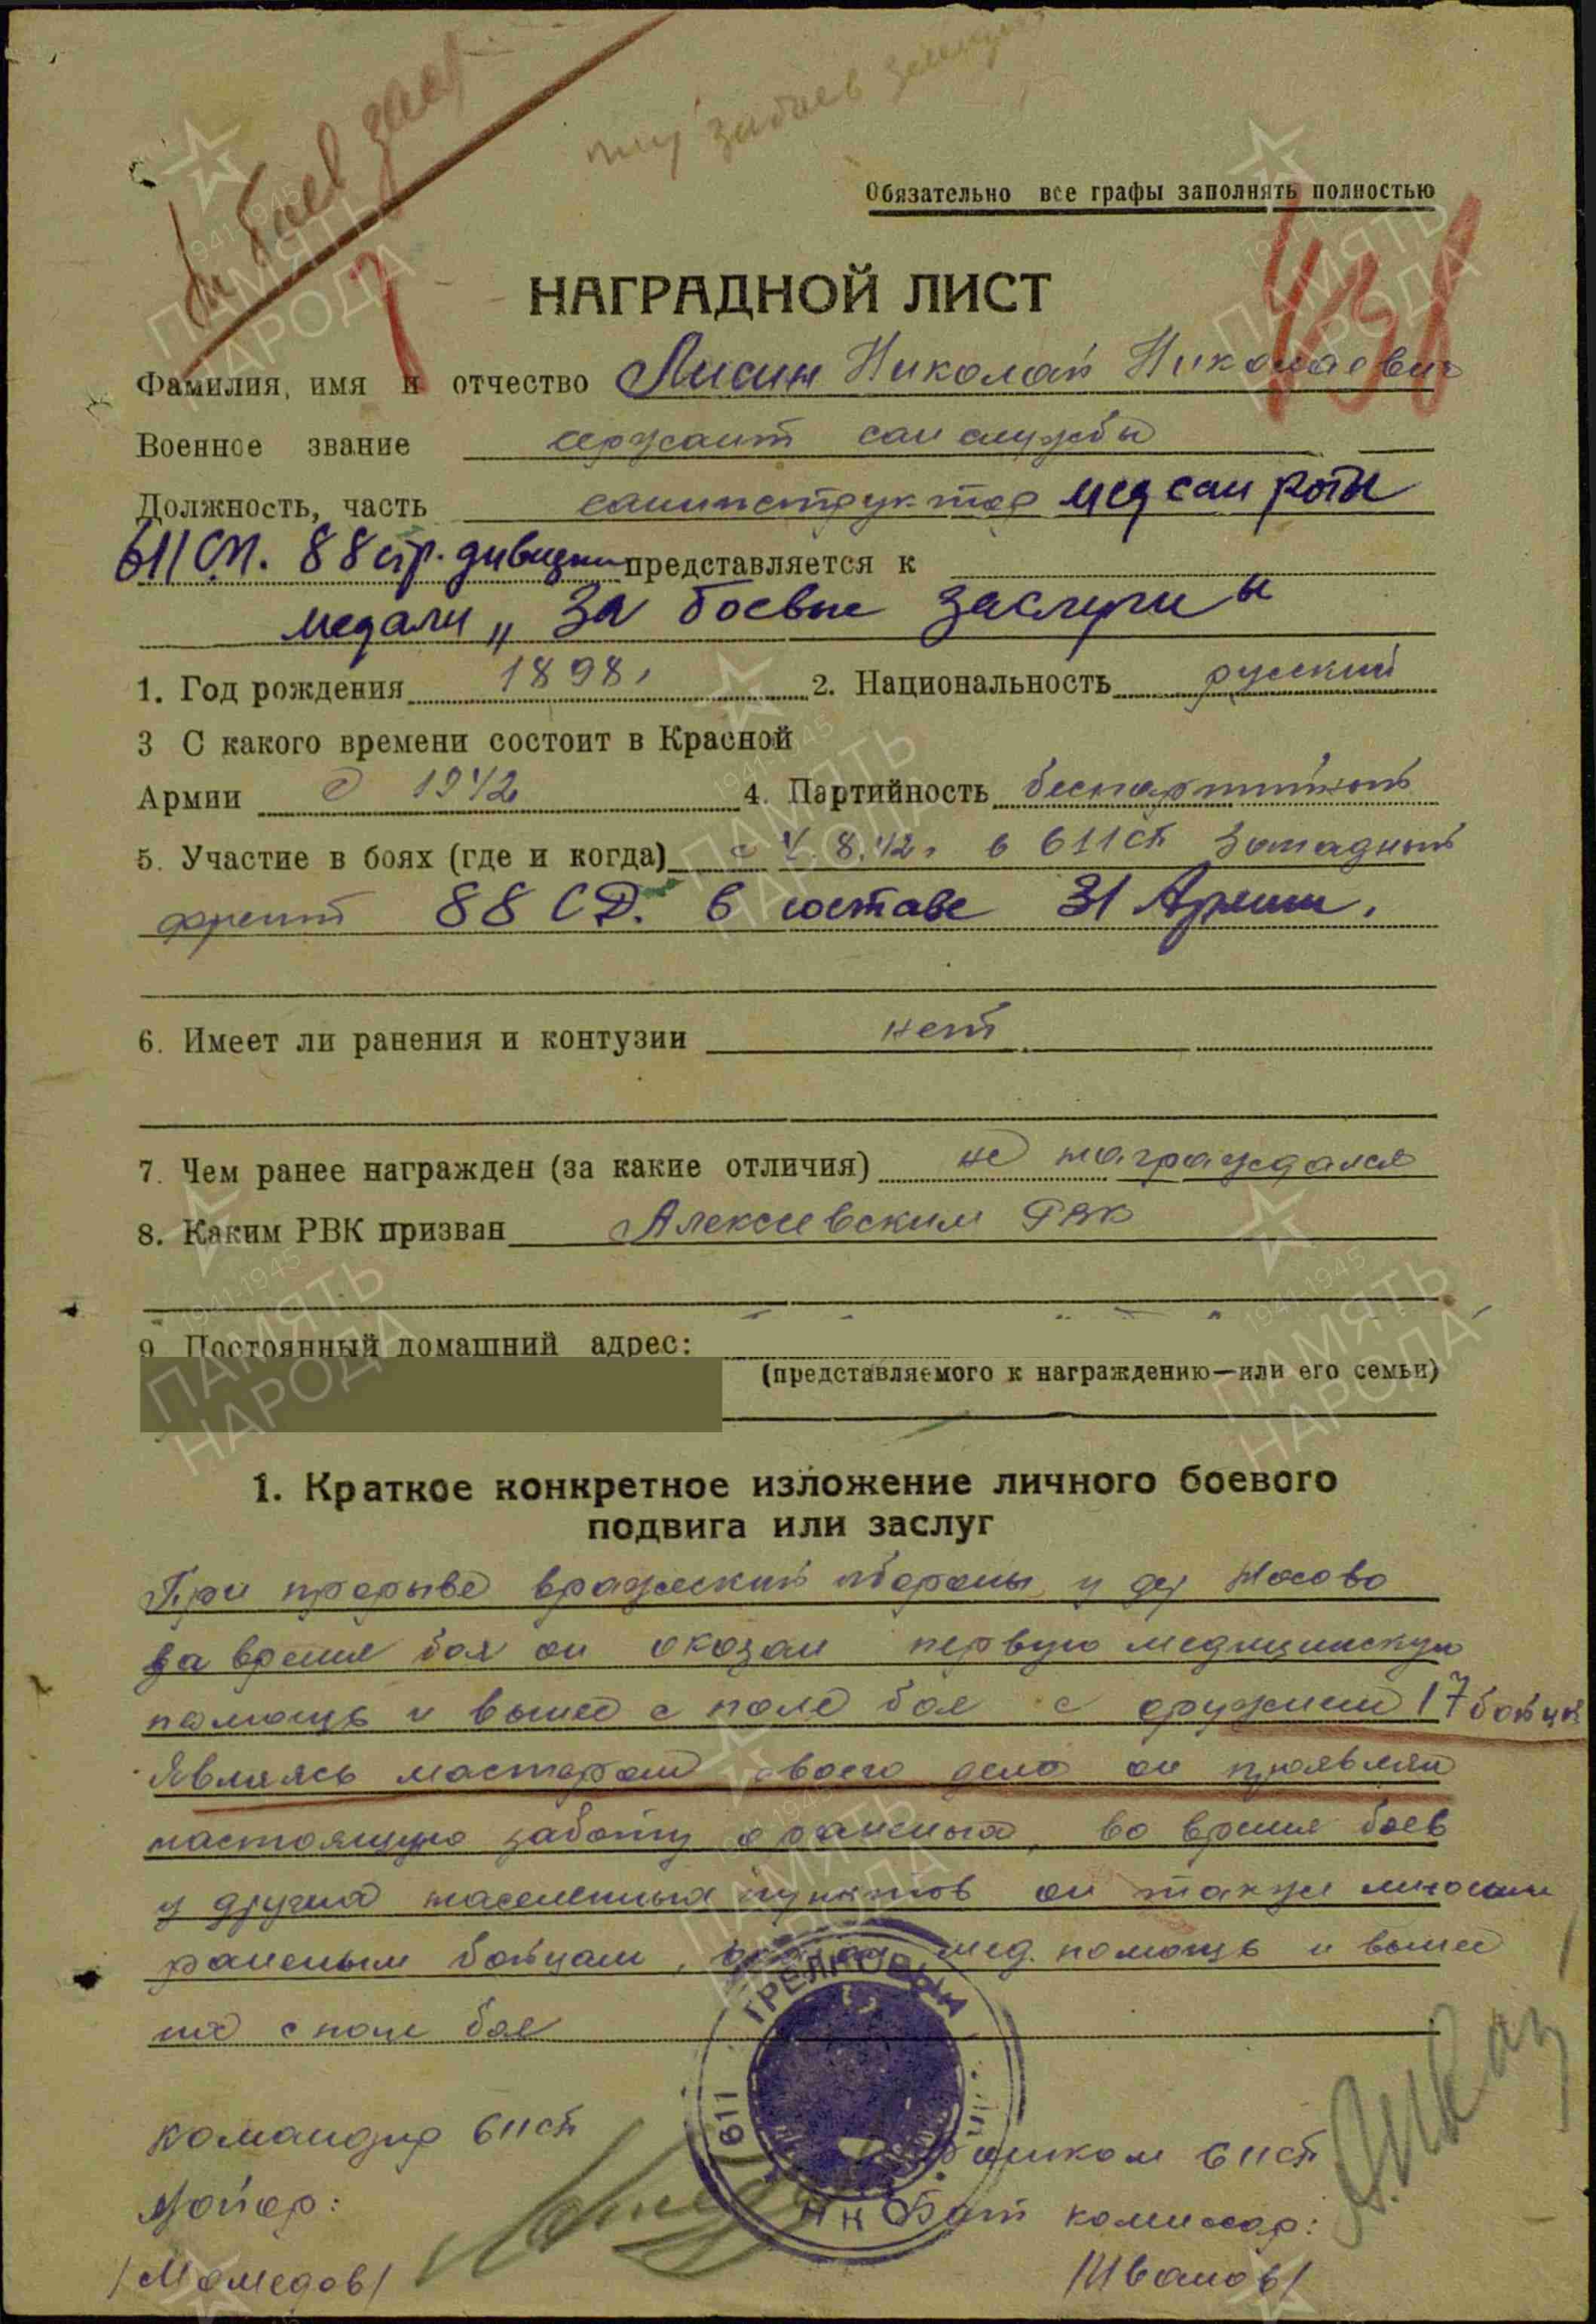 м боев засл
Обязательно все графы заполнять полностью
НАГРАДНОЙ ЛИСТ
Фамилия, имя и отчество Лисин Николай Николаевич
Военное звание сержант сан службы
Должность, часть санинструктор медсанроты
611 СП. 88 стр. дивизии представляется к
медали „За боевые заслуги"
1. Год рождения 1898г 2. Национальность русский
3 С какого времени состоит в Красной
Армии с 1942 4. Партийность беспартийный
5. Участие в боях (где и когда) с 8.42г в 611сп Западный
фронт 88 СД. в составе 31 Армии.
6. Имеет ли ранения и контузии нет
7. Чем ранее награжден (за какие отличия) не награждался
8. Каким РВК призван Алексеевским РВК
9 Постоянный домашний адрес:
(представляемого к награждению—или его семьи)
1. Краткое конкретное изложение личного боевого
подвига или заслуг
При прорыве вражеской обороны у дер Носово
за время боя он оказал первую медицинскую
помощь и вынес с поля боя с оружием 17 бойцов
Являясь мастером своего дела он проявлял
настоящую заботу о раненых, во время боев
у других населенных пунктов он также многим
раненым бойцам, оказал мед. помощь и вынес
их с поля боя
СТРЕЛКОВЫЙ
611
НКО
командир 611сп
Майор:
/Мамедов/
комиссар 611сп
Бат комиссар:
/Иванов/
1941-1945
ПАМЯТЬ
НАРОДА